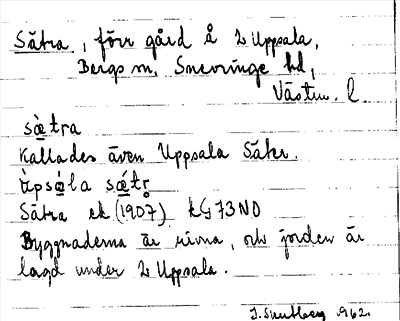 Sätra, förr gård å L Uppsala,
Bergs sn, Snevringe hd,
Västm. l.
sä̀tra
Kallades även Uppsala Säter.
ùpsa̱la sä́tr̥
Sätra ek (1907) k G 73 NO
Byggnaderna är rivna, och jorden är
lagd under L Uppsala.
J. Sundberg 1962